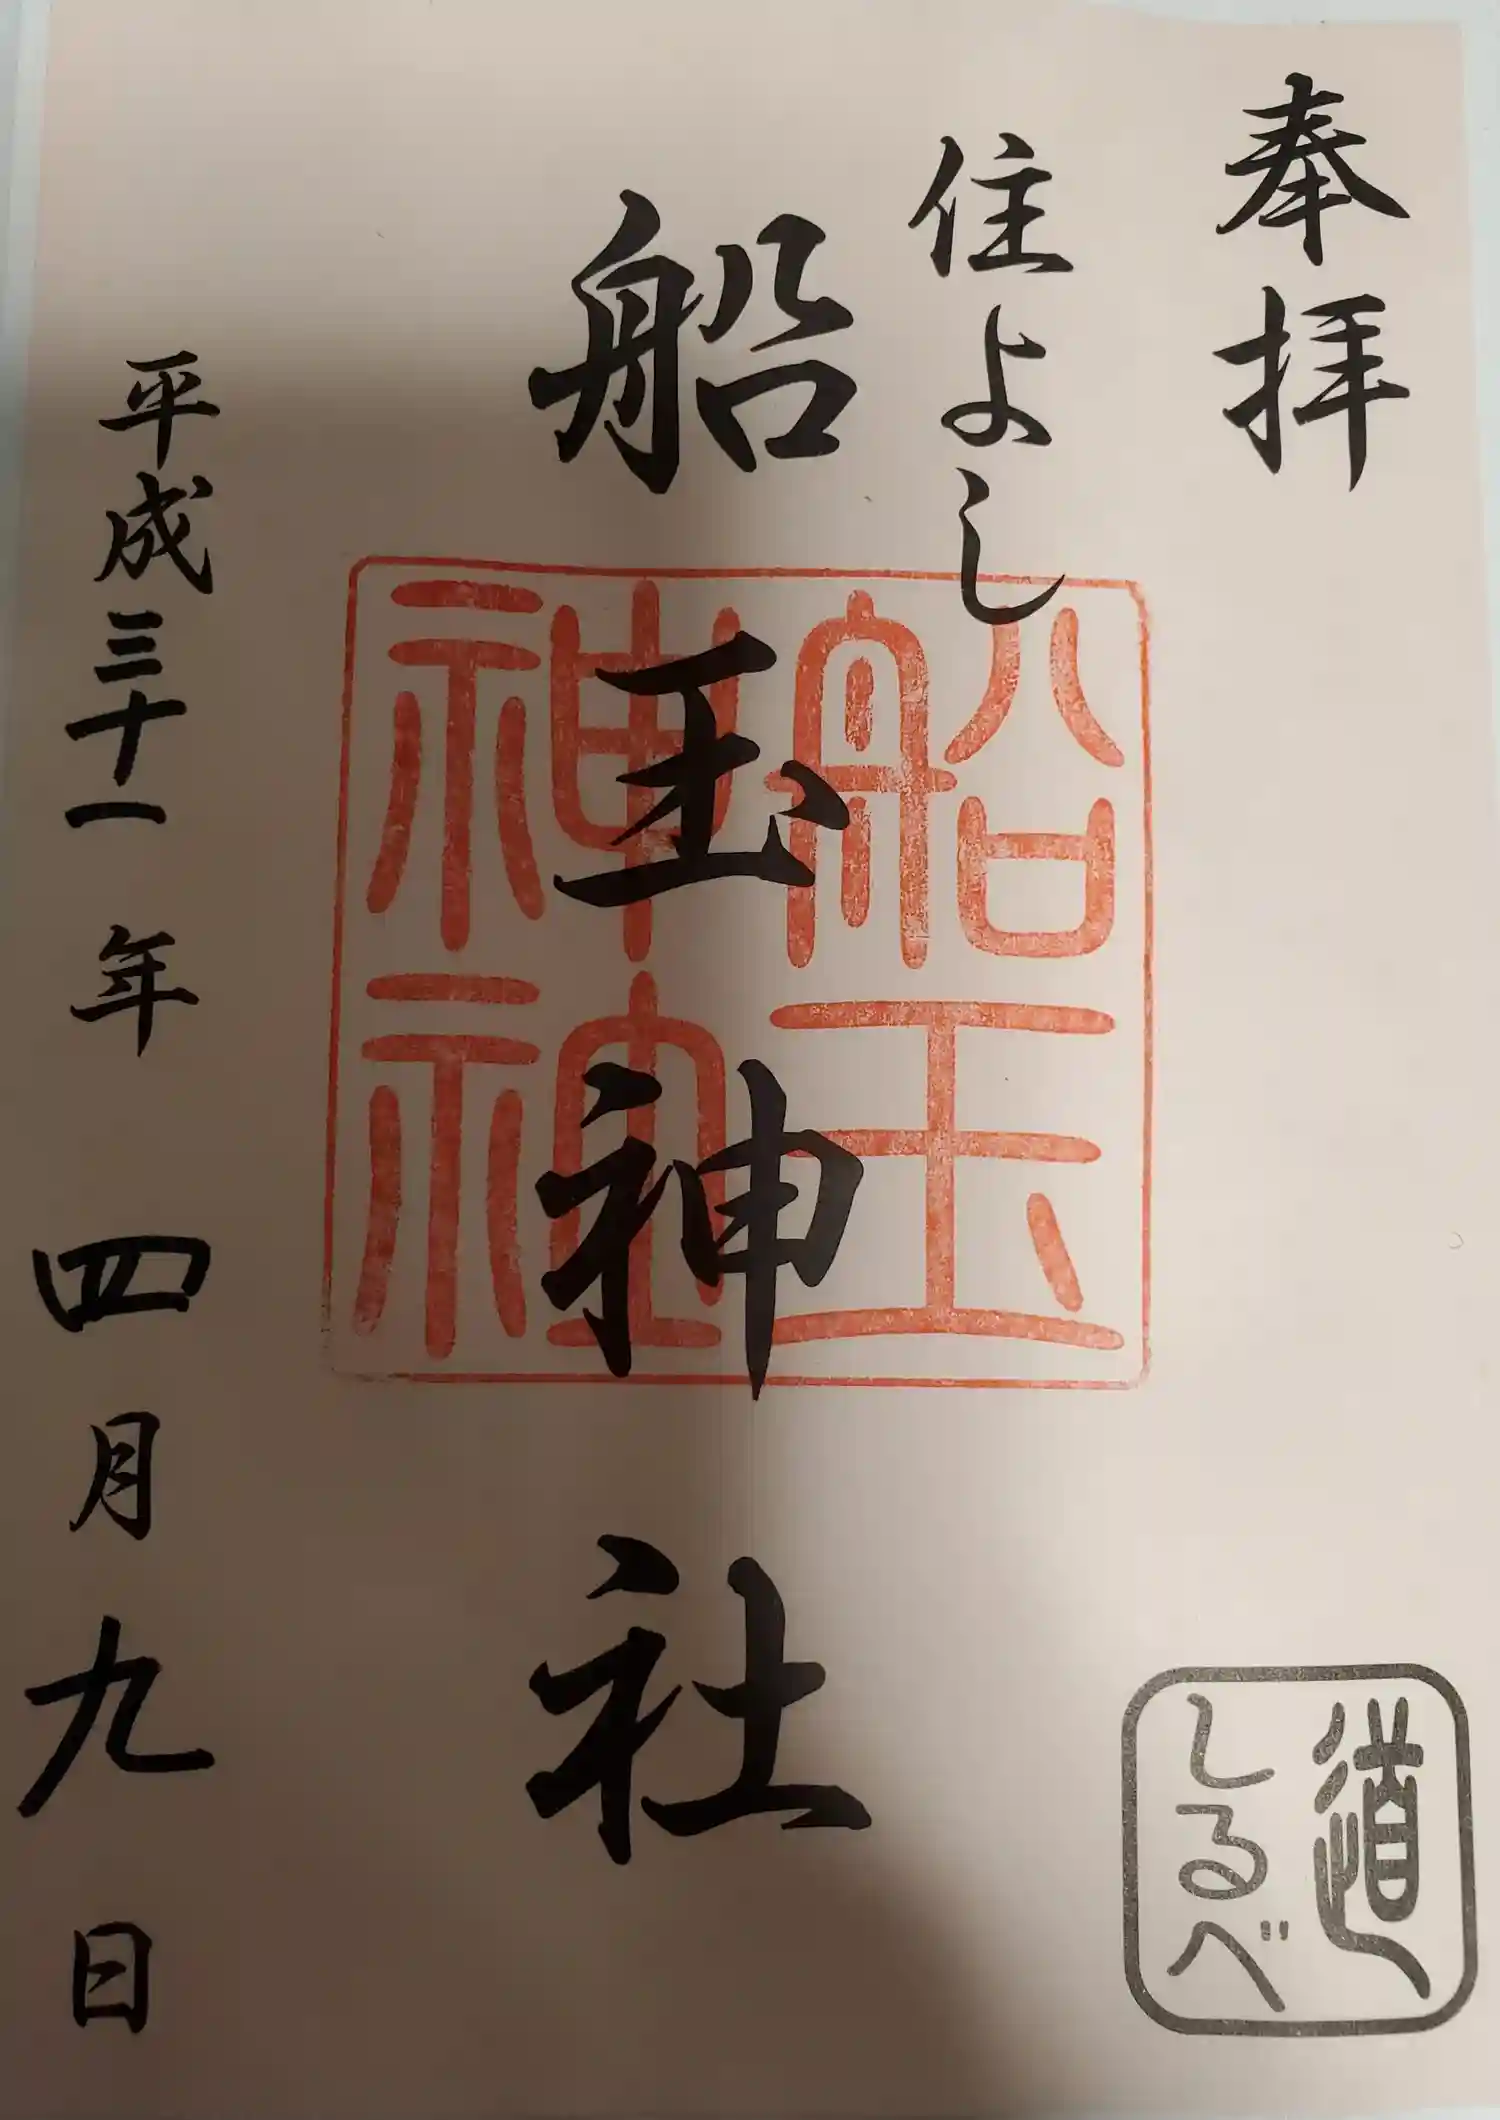 奉拝
住よし
船玉神社
船玉
神社
平成三十一年 四月九日
道
しるべ